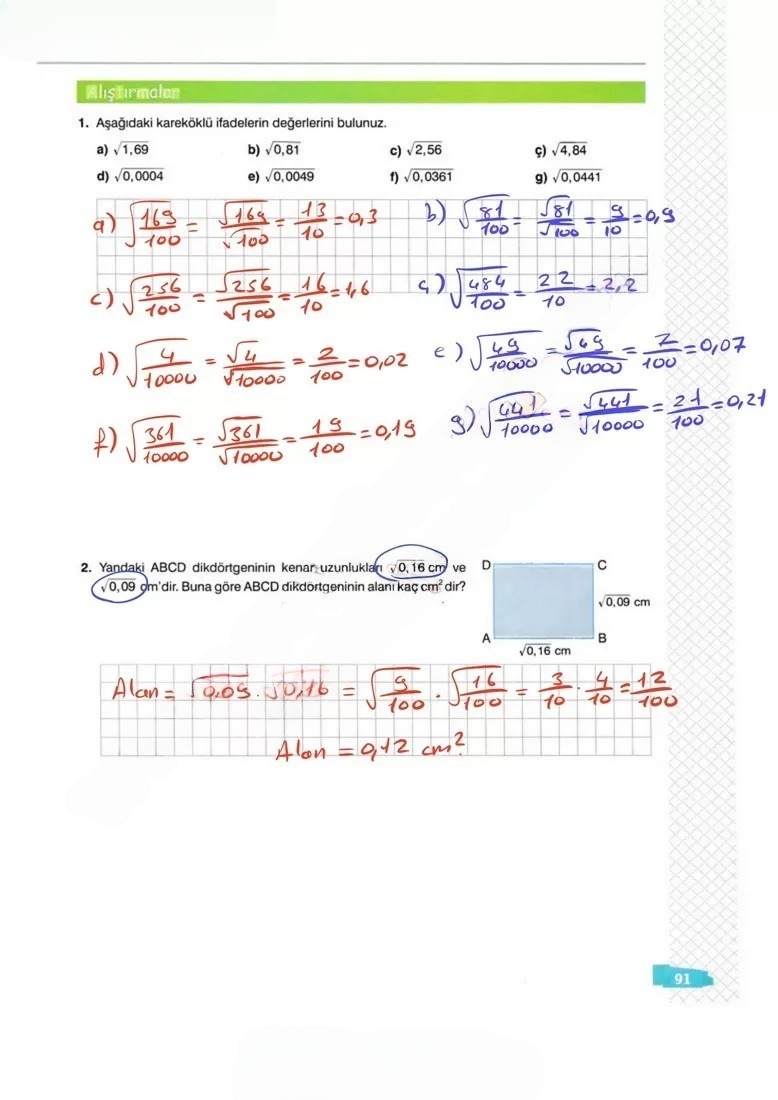 Alıştırmalar
1. Aşağıdaki kareköklü ifadelerin değerlerini bulunuz.
a) √1,69 b) √0,81 c) √2,56 ç) √4,84
d) √0,0004 e) √0,0049 f) √0,0361 g) √0,0441
a) √(169/100) = √169/√100 = 13/10 = 0,3 b) √(81/100) = √81/√100 = 9/10 = 0,9
c) √(256/100) = √256/√100 = 16/10 = 1,6 ç) √(484/100) = 22/10 = 2,2
d) √(4/10000) = √4/√10000 = 2/100 = 0,02 e) √(49/10000) = √49/√10000 = 7/100 = 0,07
f) √(361/10000) = √361/√10000 = 19/100 = 0,19 g) √(441/10000) = √441/√10000 = 21/100 = 0,21
2. Yandaki ABCD dikdörtgeninin kenar uzunlukları √0,16 cm ve
√0,09 cm'dir. Buna göre ABCD dikdörtgeninin alanı kaç cm² dir?
D C
√0,09 cm
A B
√0,16 cm
Alan = √0,09 . √0,16 = √(9/100) . √(16/100) = 3/10 . 4/10 = 12/100
Alan = 0,12 cm²
91